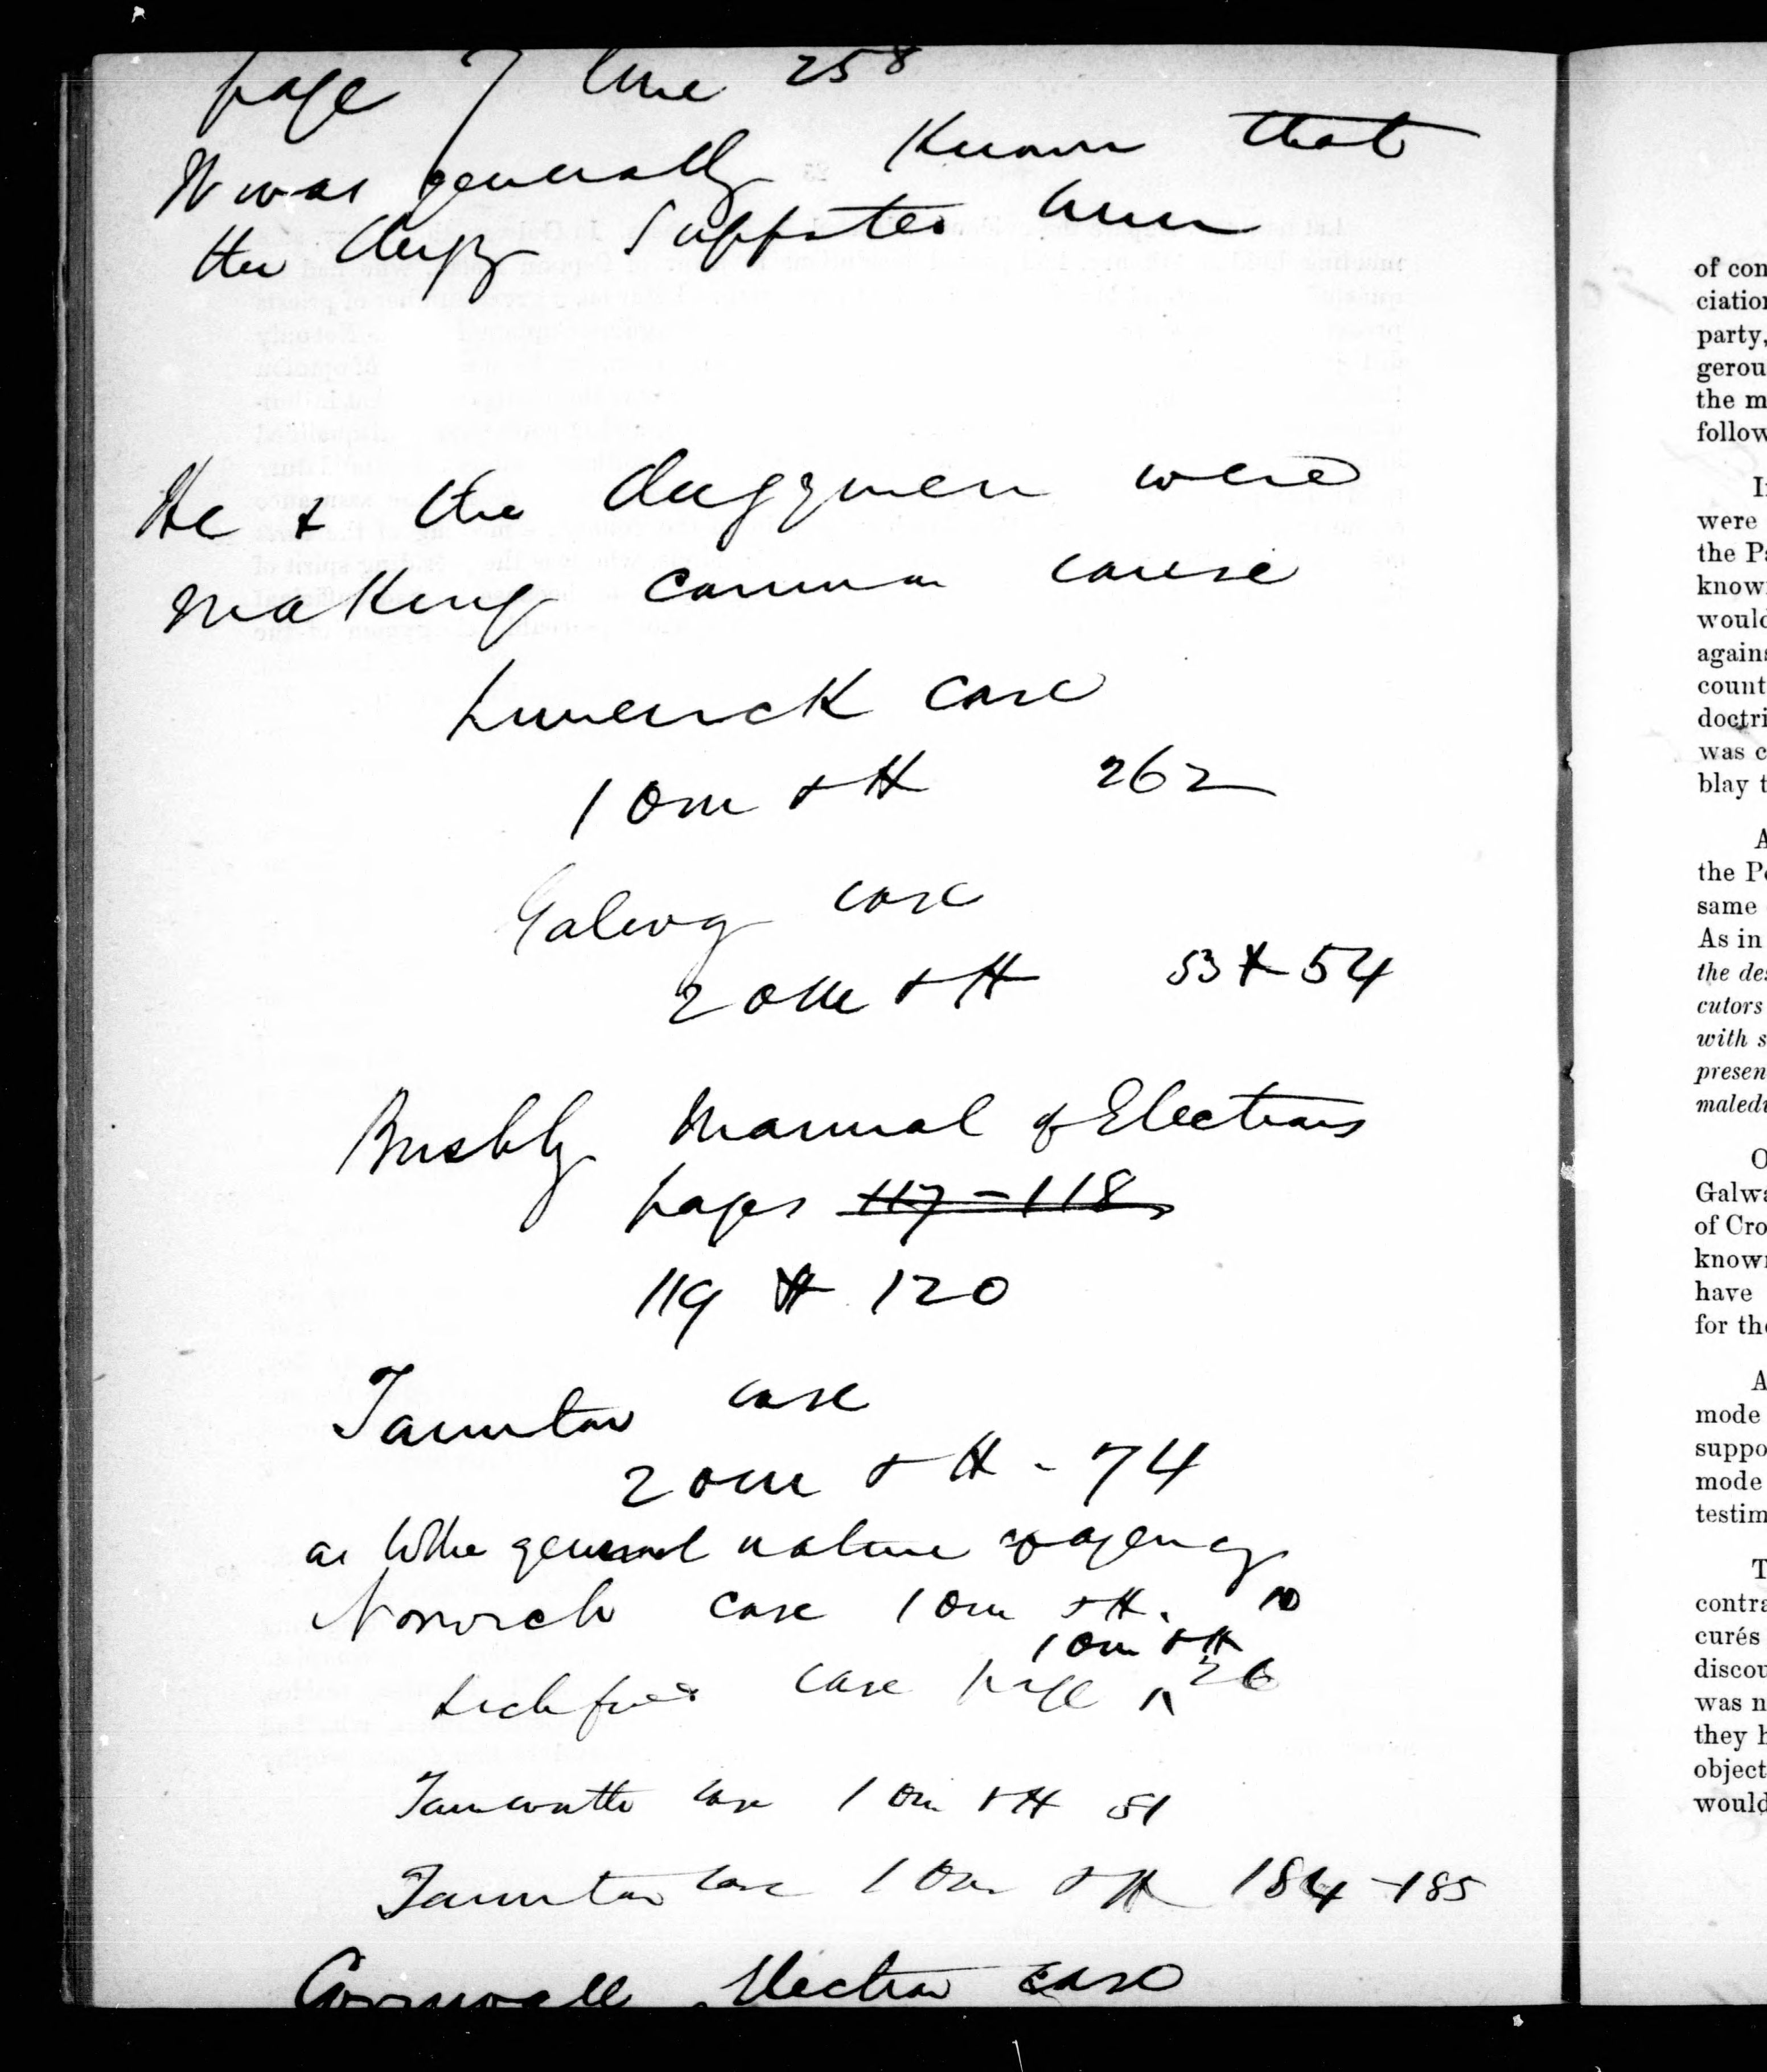 page 7 line 258
It was generally known that
the clergy supported him
He & the clergymen were
making common cause
Limerick case
1 Om & H 262
Galway case
2 OM & H 53 & 54
Bushby Manual of Elections
pages 117-118
119 & 120
Taunton case
2 OM & H - 74
as to the general nature of agency
Norwich case 1 Om & H. 10
1 Om & H
Lichfield case page ^ 26
Tamworth case 1 Om & H 81
Taunton case 1 Om & H 184-185
Cornwall Election case
of con
ciation
party,
gerou
the m
follow
I
were
the Pa
known
would
agains
count
doctri
was c
blay t
A
the Po
same
As in
the des
cutors
with s
presen
maledi
O
Galwa
of Cro
known
have
for the
A
mode
suppo
mode
testim
T
contra
curés
discou
was n
they h
object
would